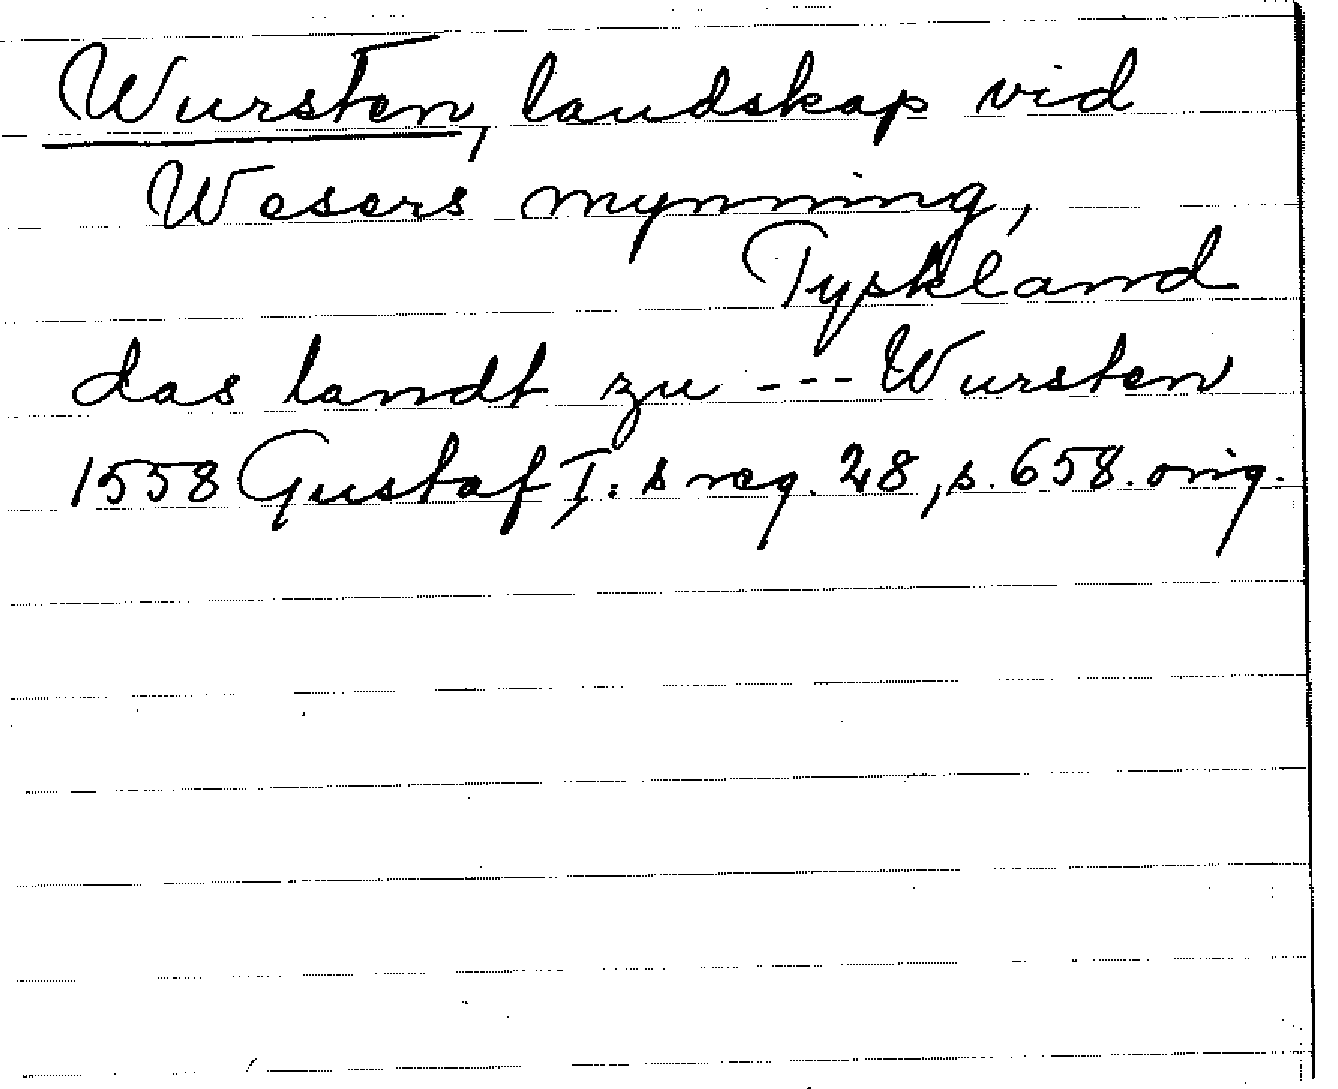 Wursten, landskap vid
Wesers mynning,
Tyskland
das landt zu --- Wursten
1558 Gustaf I:s reg. 28, s. 658. orig.